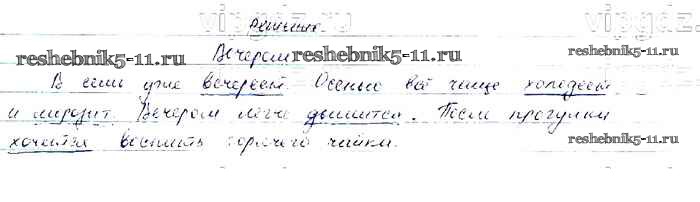 vipgdz. vipgdz.
Решение.
reshebnik5-11.ru Вечером reshebnik5-11.ru reshebnik5-11.ru
В семь уже вечереет. Осенью всё чаще холодает
и морозит. Вечером легче дышится. После прогулки
хочется выпить горячего чайку.
reshebnik5-11.ru
vipgdz. vipgdz.